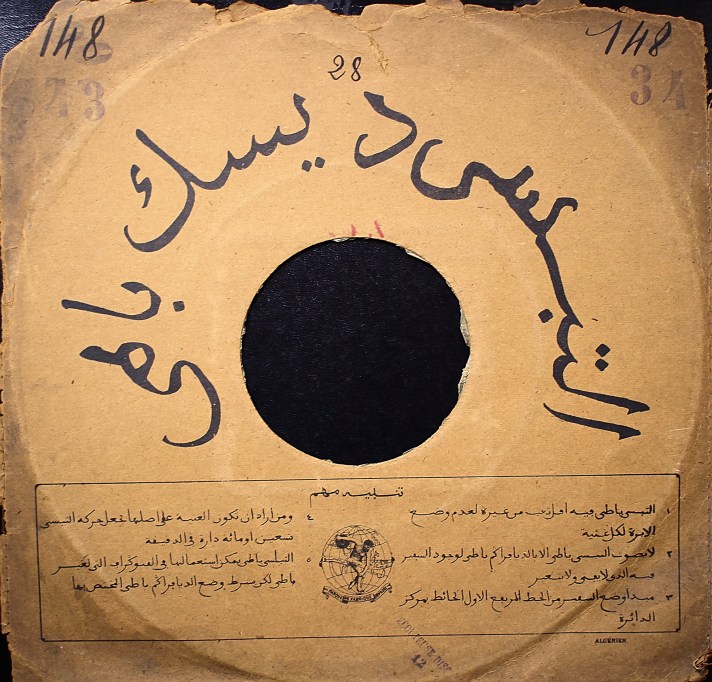 148
148
43
34
28
التبسى ديسك باطى
تنبيه مهم
١ التبسى باطى فيه اقل تعب من غيره لعدم وضع
الابرة لكل غنية
٢ لا يصوت التبسى باطى الا بالديافراكم باطى لوجود السفير
فيه الذى لا يفنى ولا يتغير
٣ مبدأ وضع السفير من الخط المربع الاول الحائط بمركز
الدائرة
٤ ومن اراد ان تكون الغنية على اصلها يجعل حركة التبسى
تسعين او مائة دارة فى الدقيقة
٥ التبسى باطى يمكن استعمالها فى الفنوكراف التى لغير
باطى لكن بشرط وضع الديافراكم باطى المختص بها
42
ALGERIEN